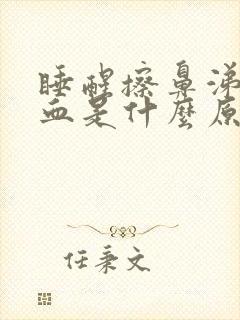 睡醒擦鼻涕
血是什麼原
任秉文